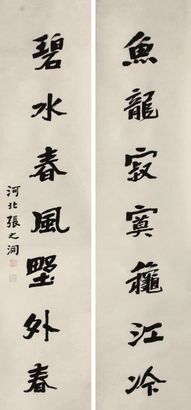 魚龍寂寞龝江冷
碧水春風墅外春
河北張之洞